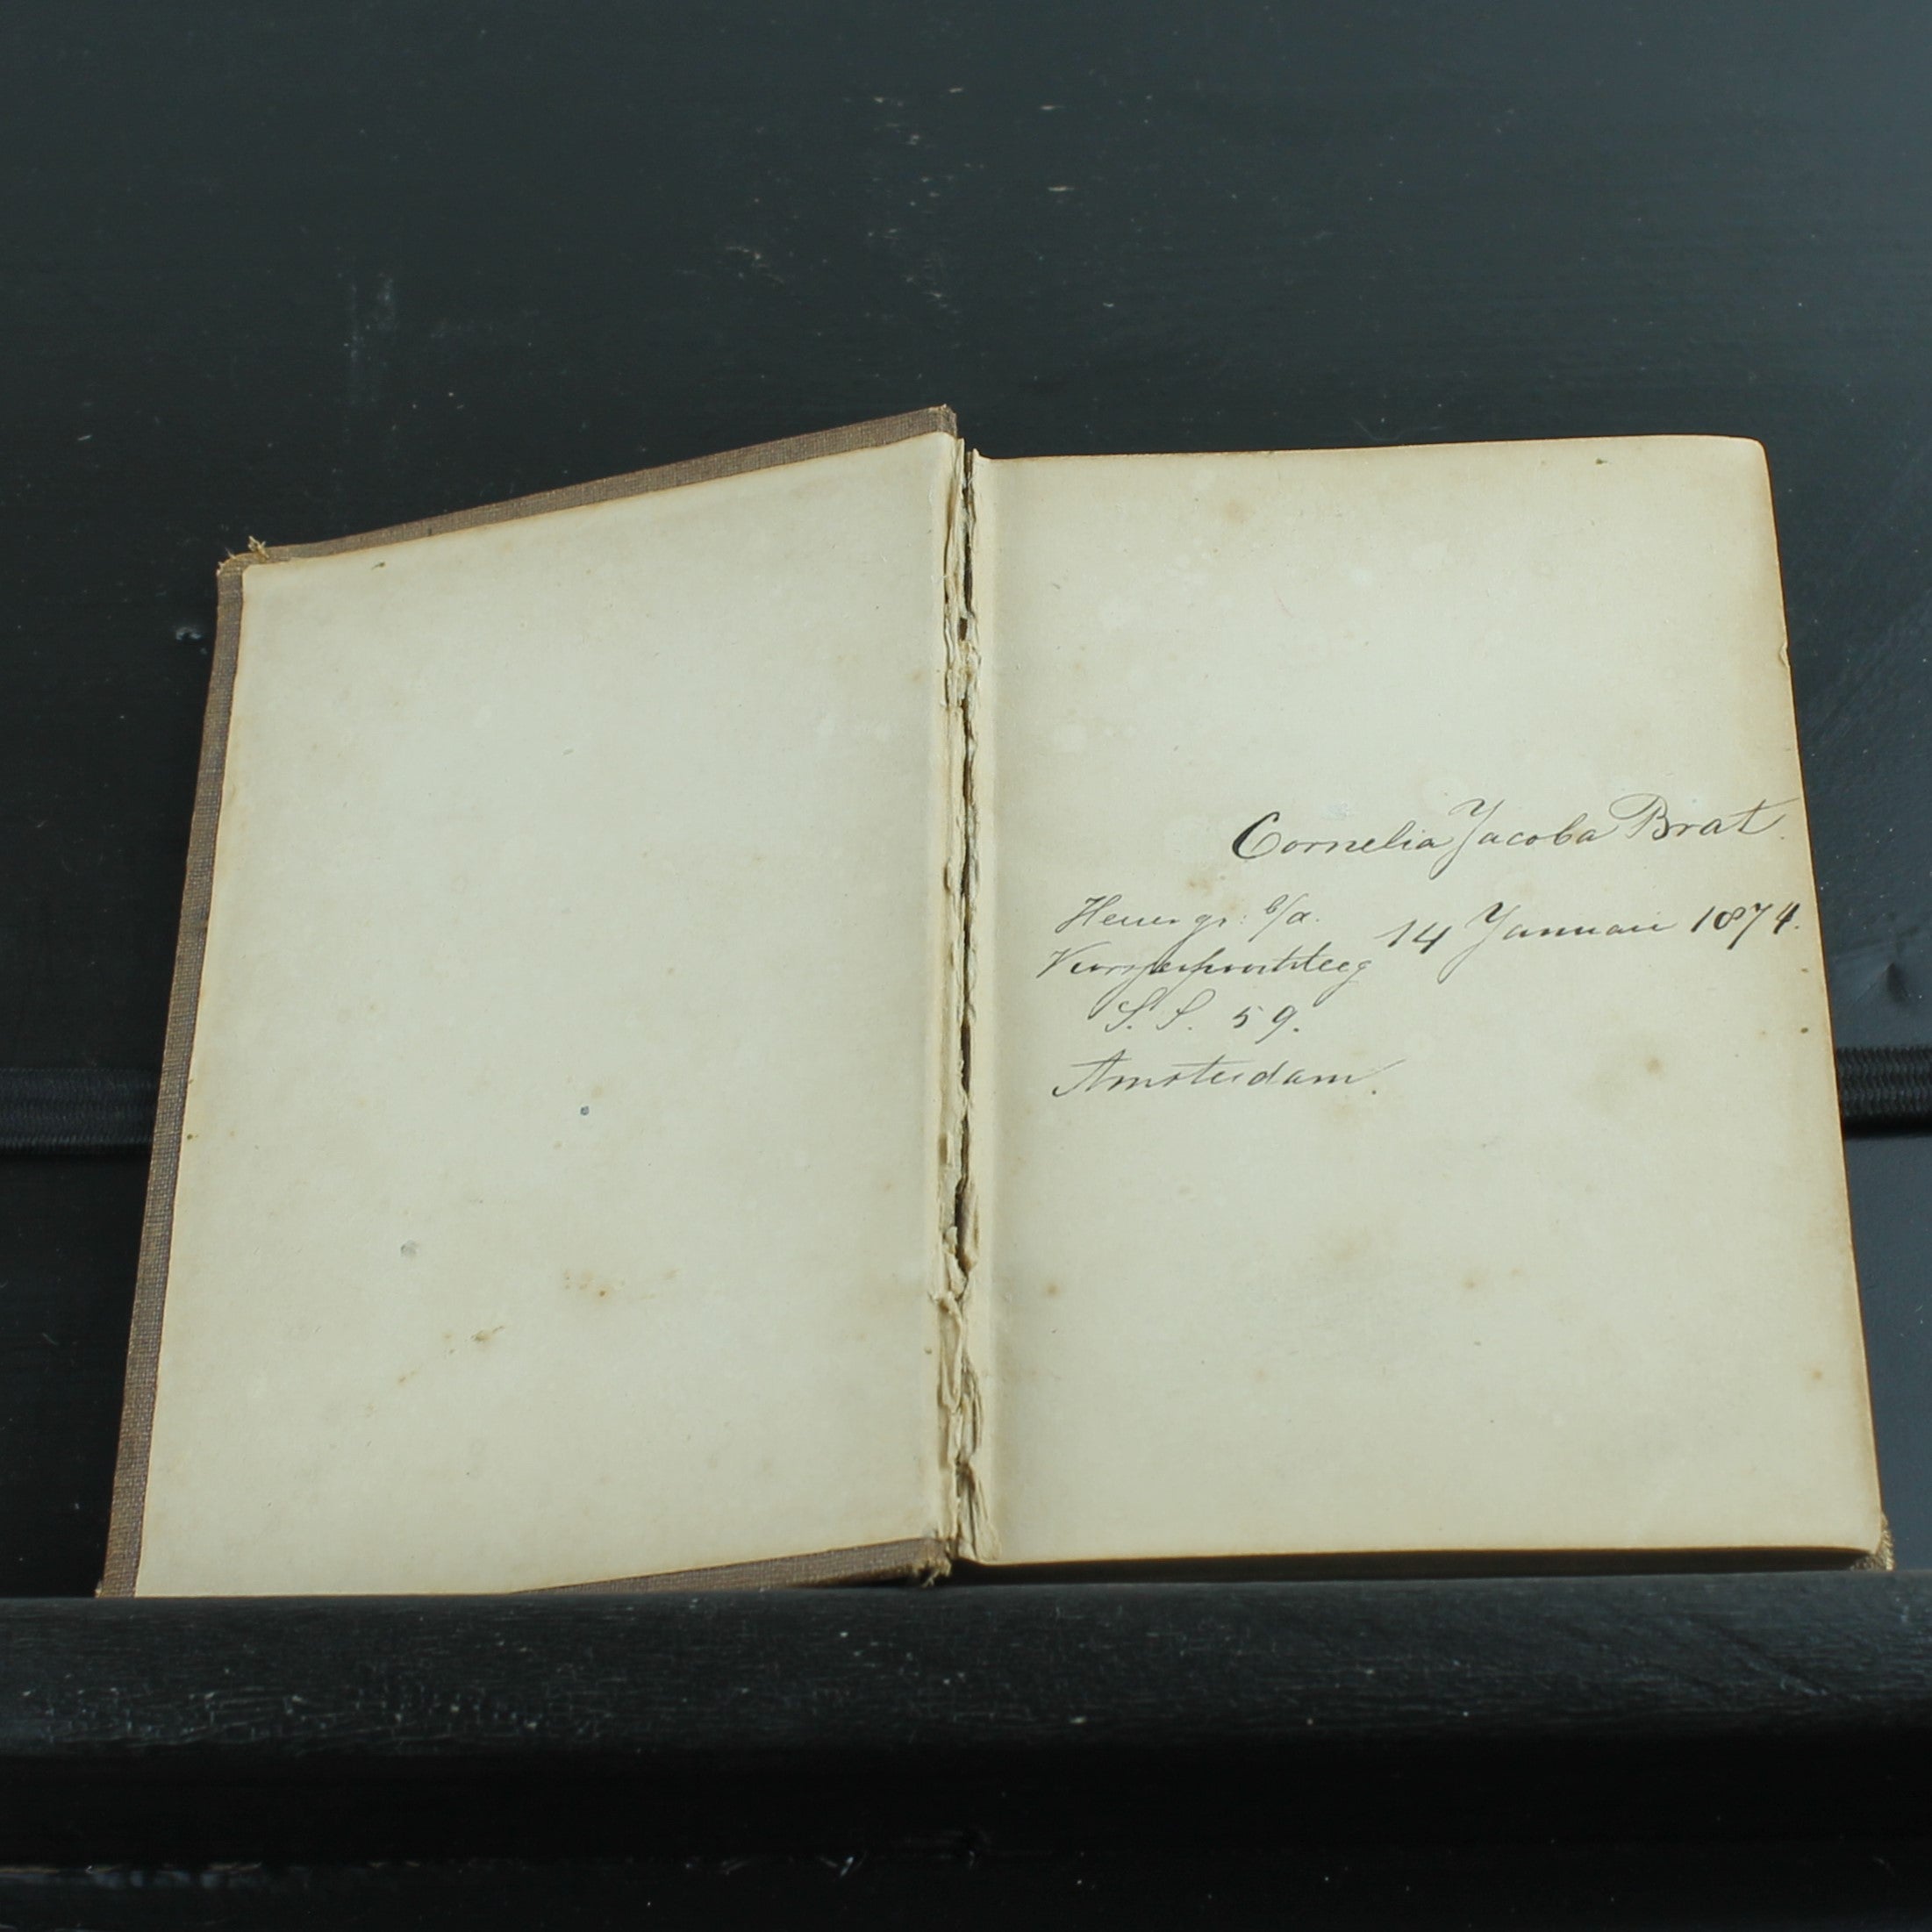 Cornelia Jacoba Brat.
Heerengr: b/a.
14 Januari 1874.
S.S. 59.
Amsterdam.